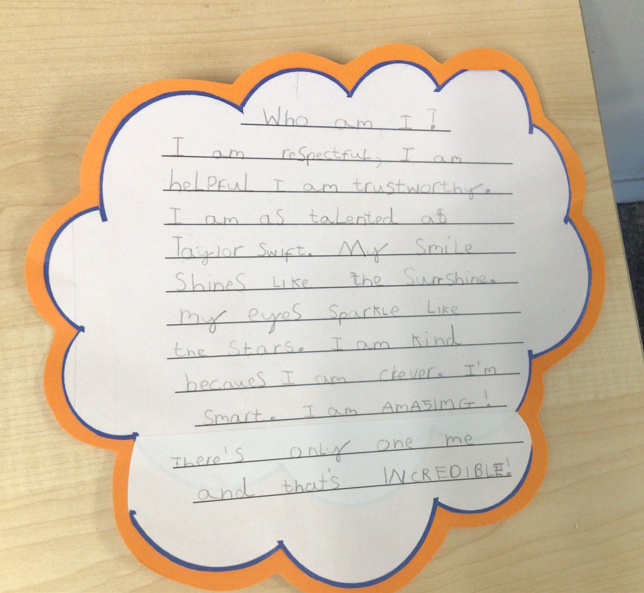 Who am I?
I am respectful, I am
helpful I am trustworthy.
I am as talented as
Taylor Swift. My Smile
Shines Like the Sunrshine.
my eyes Sparkle Like
the Stars. I am kind
becaues I am clever. I'm
Smart. I am AMASIMG!
There's only one me
and that's INCREDIBLE!